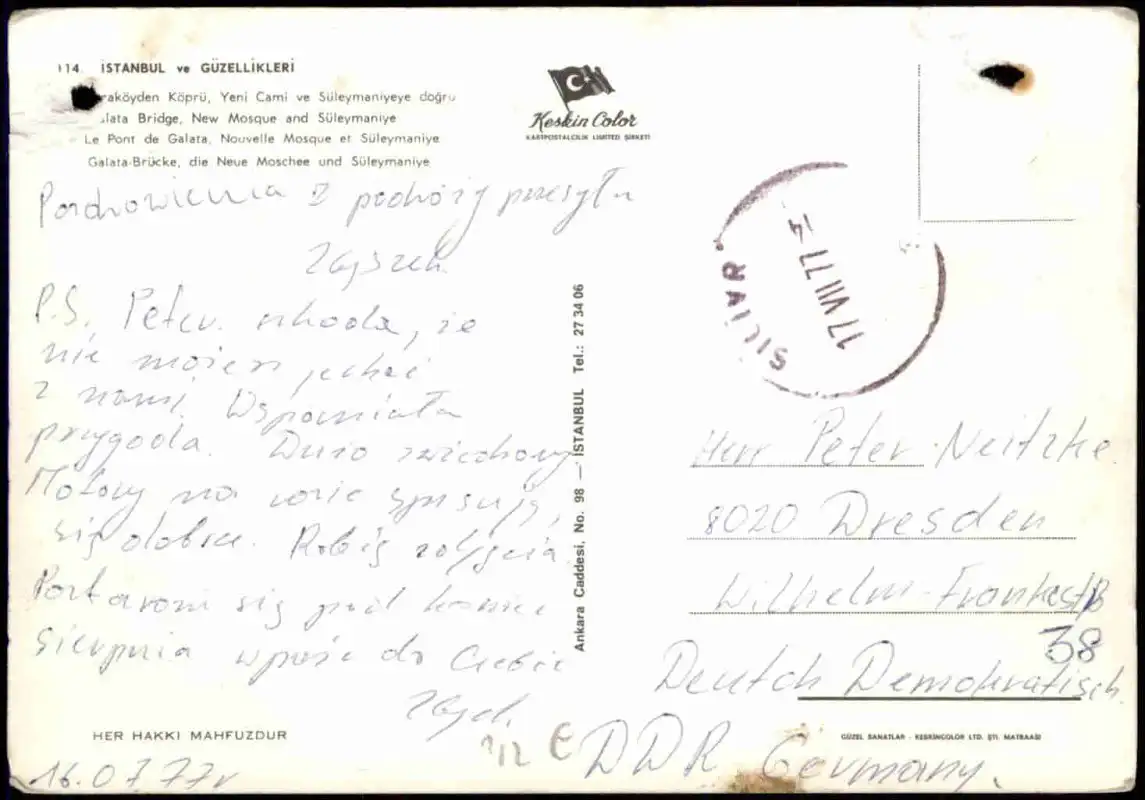 114. İSTANBUL ve GÜZELLİKLERİ
raköyden Köprü, Yeni Cami ve Süleymaniyeye doğru
lata Bridge, New Mosque and Süleymaniye
Le Pont de Galata, Nouvelle Mosque et Süleymaniye
Galata-Brücke, die Neue Moschee und Süleymaniye
Keskin Color
KARTPOSTALCILIK LIMITED ŞİRKETİ
Pozdrowienia z podróży przesyła
Zbyszek.
P.S. Peter. szkoda, że
nie możesz jechać
z nami. Wspaniała
przygoda. Dużo zwiedzamy
Motory na razie spisują
się dobrze. Robię zdjęcia.
Postaram się pod koniec
sierpnia wpaść do Ciebie
Zbych.
HER HAKKI MAHFUZDUR
16.07.77r
Ankara Caddesi, No. 98 — İSTANBUL Tel.: 27 34 06
SİLİVR
17 VII 77
Herr Peter Neitzke
8020 Dresden
Wilhelm-Franke-
38
Deutch Demokratisch.
DDR Germany.
GÜZEL SANATLAR - KESKİNCOLOR LTD. ŞTİ. MATBAASI